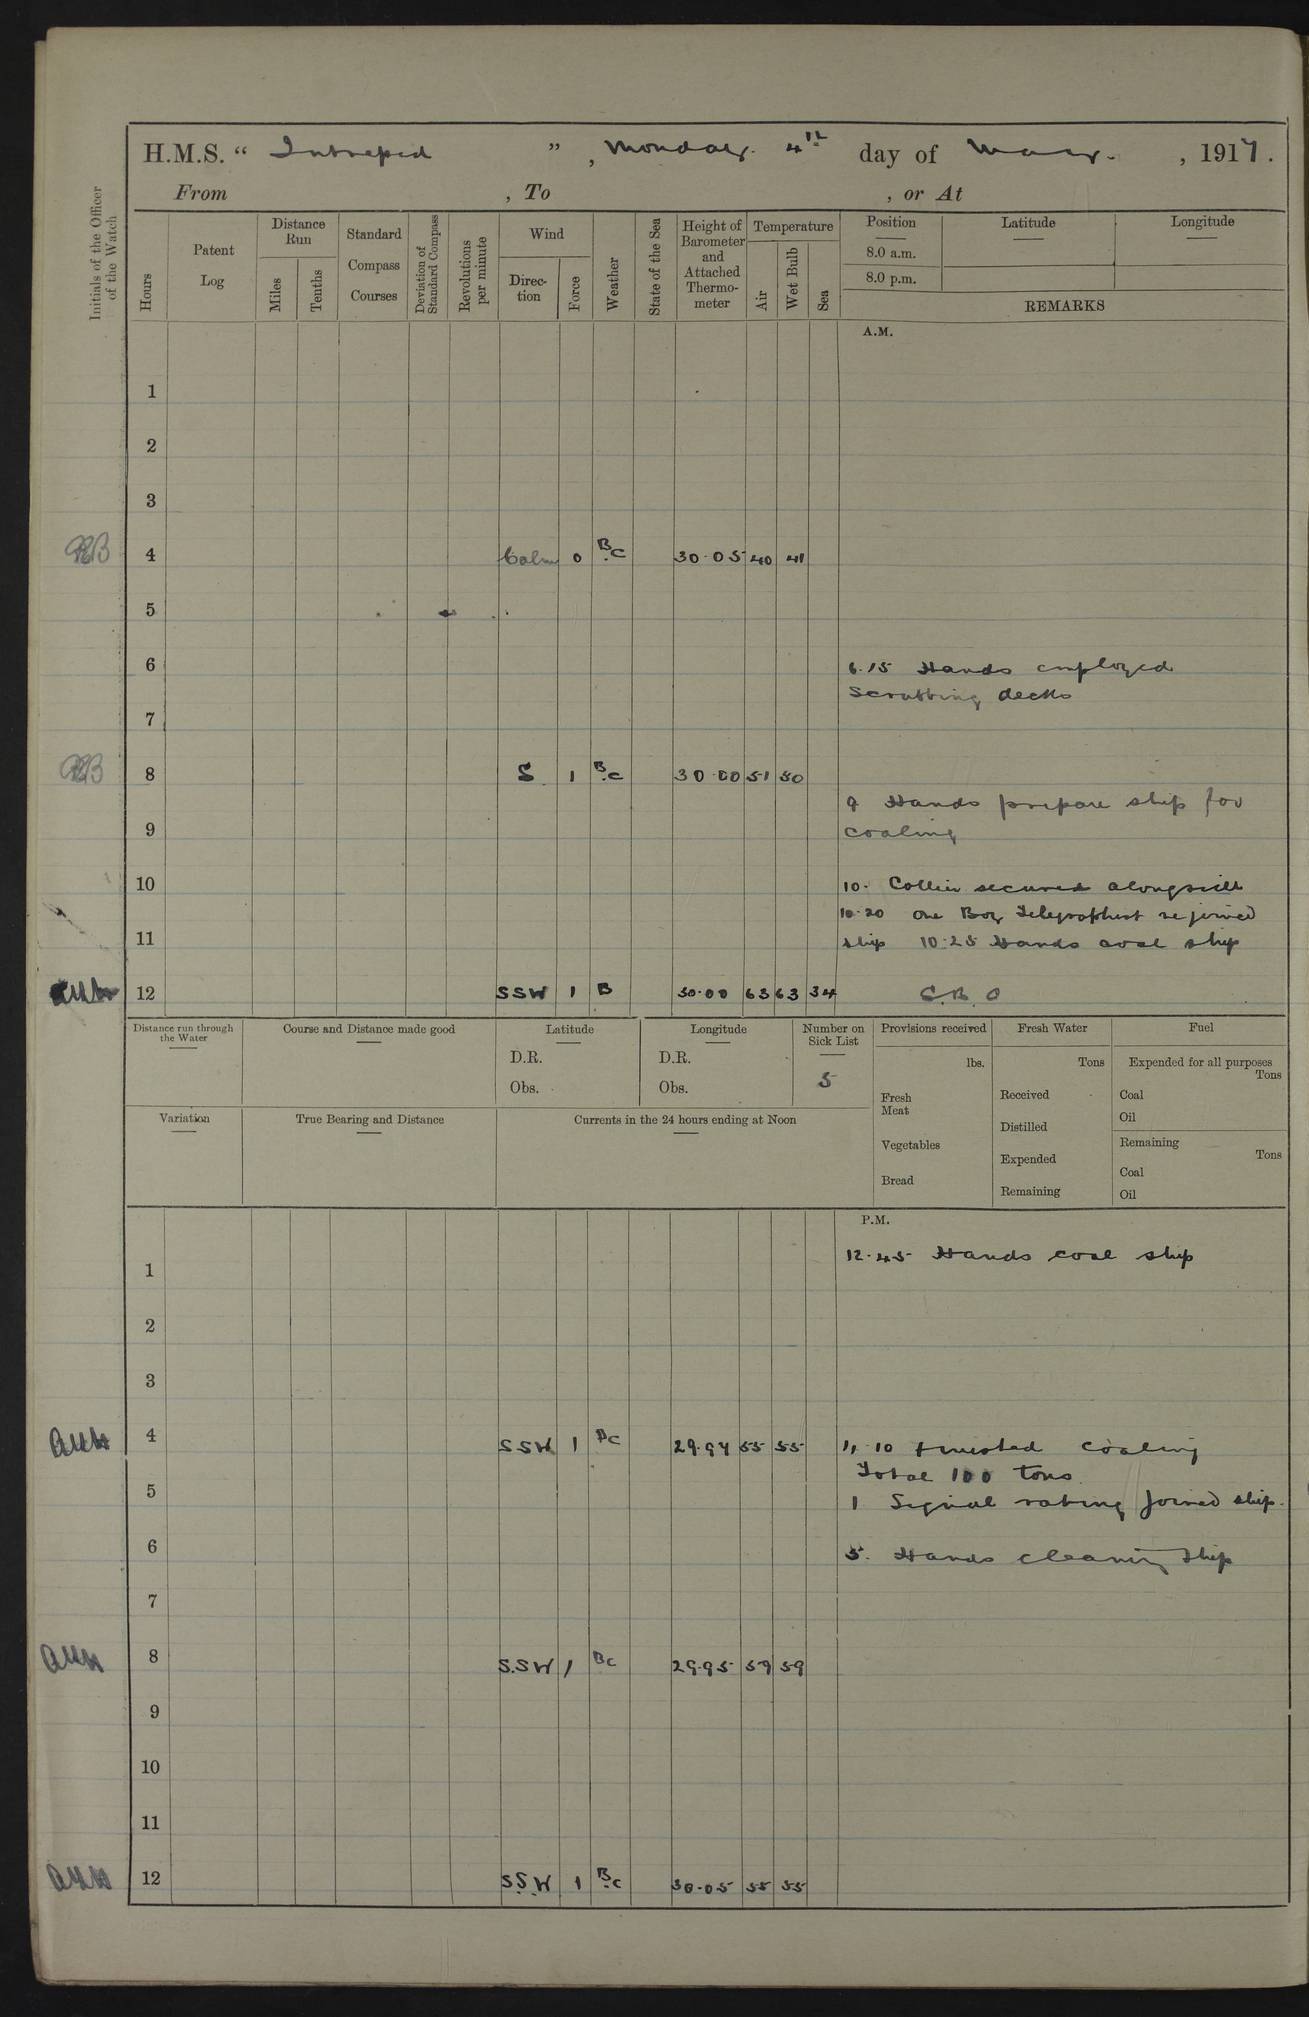 H.M.S. “ Intrepid ” , Monday. 4th day of May. , 1917.
From , To , or At
Initials of the Officer of the Watch
Hours
Patent Log
Distance Run
Miles
Tenths
Standard Compass Courses
Deviation of Standard Compass
Revolutions per minute
Wind
Direc-tion
Force
Weather
State of the Sea
Height of Barometer and Attached Thermo-meter
Temperature
Air
Wet Bulb
Sea
Position
8.0 a.m.
8.0 p.m.
Latitude
Longitude
REMARKS
A.M.
1
2
3
4 Calm 0 B.C 30.05 40 41
5
6 6.15 Hands employed
scrubbing decks
7
8 S 1 B.C 30.00 51 50
9 Hands prepare ship for
9 coaling
10 10. Collier secured alongside
10.20 One Boy Telegraphist rejoined
11 ship 10.25 Hands coal ship
12 SSW 1 B 30.00 63 63 34
Distance run through the Water
Course and Distance made good
Latitude
D.R.
Obs.
Longitude
D.R.
Obs.
Number on Sick List
5
Provisions received
lbs.
Fresh Meat
Vegetables
Bread
Fresh Water
Tons
Received
Distilled
Expended
Remaining
Fuel
Expended for all purposes
Tons
Coal
Oil
Remaining
Tons
Coal
Oil
Variation
True Bearing and Distance
Currents in the 24 hours ending at Noon
P.M.
12.45 Hands coal ship
1
2
3
4 SSW 1 BC 29.94 55 55 4.10 Finished Coaling
Total 100 tons
5 1 Signal rating joined ship.
6 5. Hands cleaning ship
7
8 S.SW 1 BC 29.95 59 59
9
10
11
12 S.S.W 1 B.C 30.05 55 55